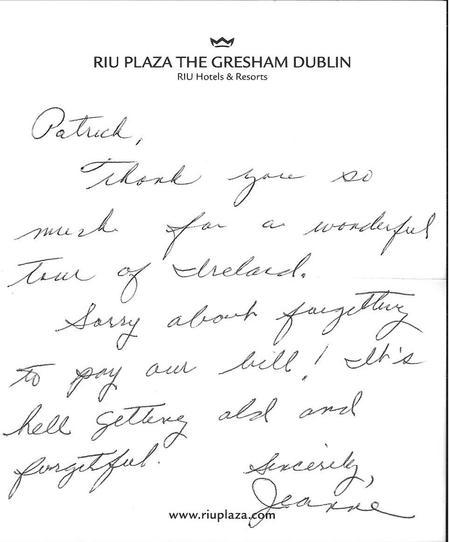 RIU PLAZA THE GRESHAM DUBLIN
RIU Hotels & Resorts
Patrick,
Thank you so
much for a wonderful
tour of Ireland.
Sorry about forgetting
to pay our bill! It's
hell getting old and
forgetful.
Sincerely,
Jeanne
www.riuplaza.com